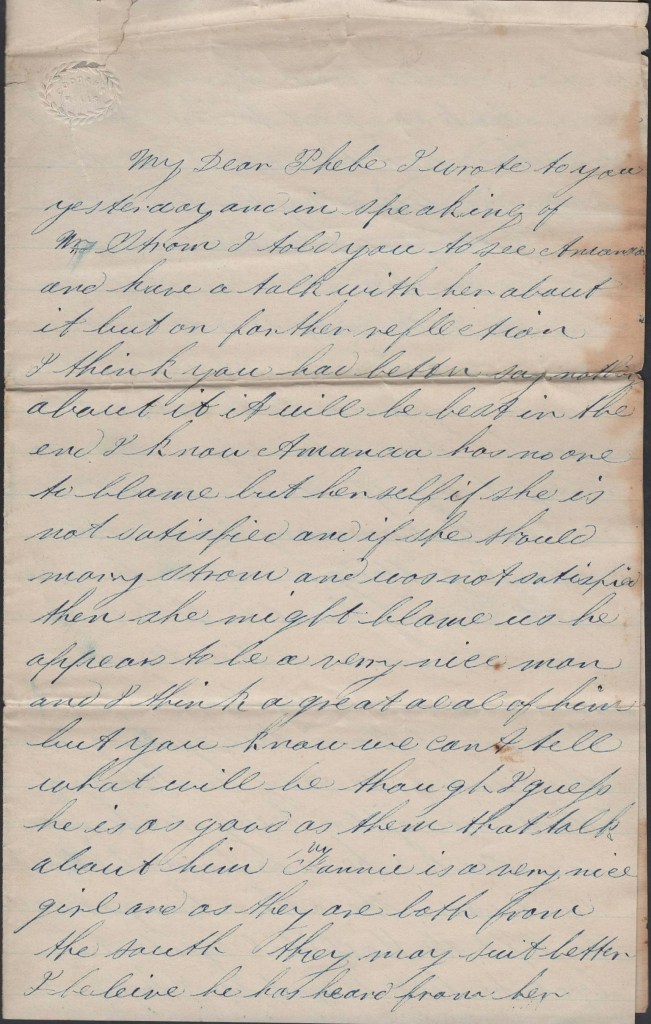 My Dear Phebe I wrote to you
yesterday and in speaking of
Mr Strom I told you to see Amanda
and have a talk with her about
it but on farther reflection
I think you had better say nothing
about it it will be best in the
end I know Amanda has no one
to blame but herself if she is
not satisfied and if she should
marry strom and was not satisfied
then she might blame us he
appears to be a very nice man
and I think a great deal of him
but you know we cant tell
what will be though I guess
he is as good as them that talk
about him Fannie is a very nice
girl and as they are both from
the south they may suit better
I beleive he has heard from her